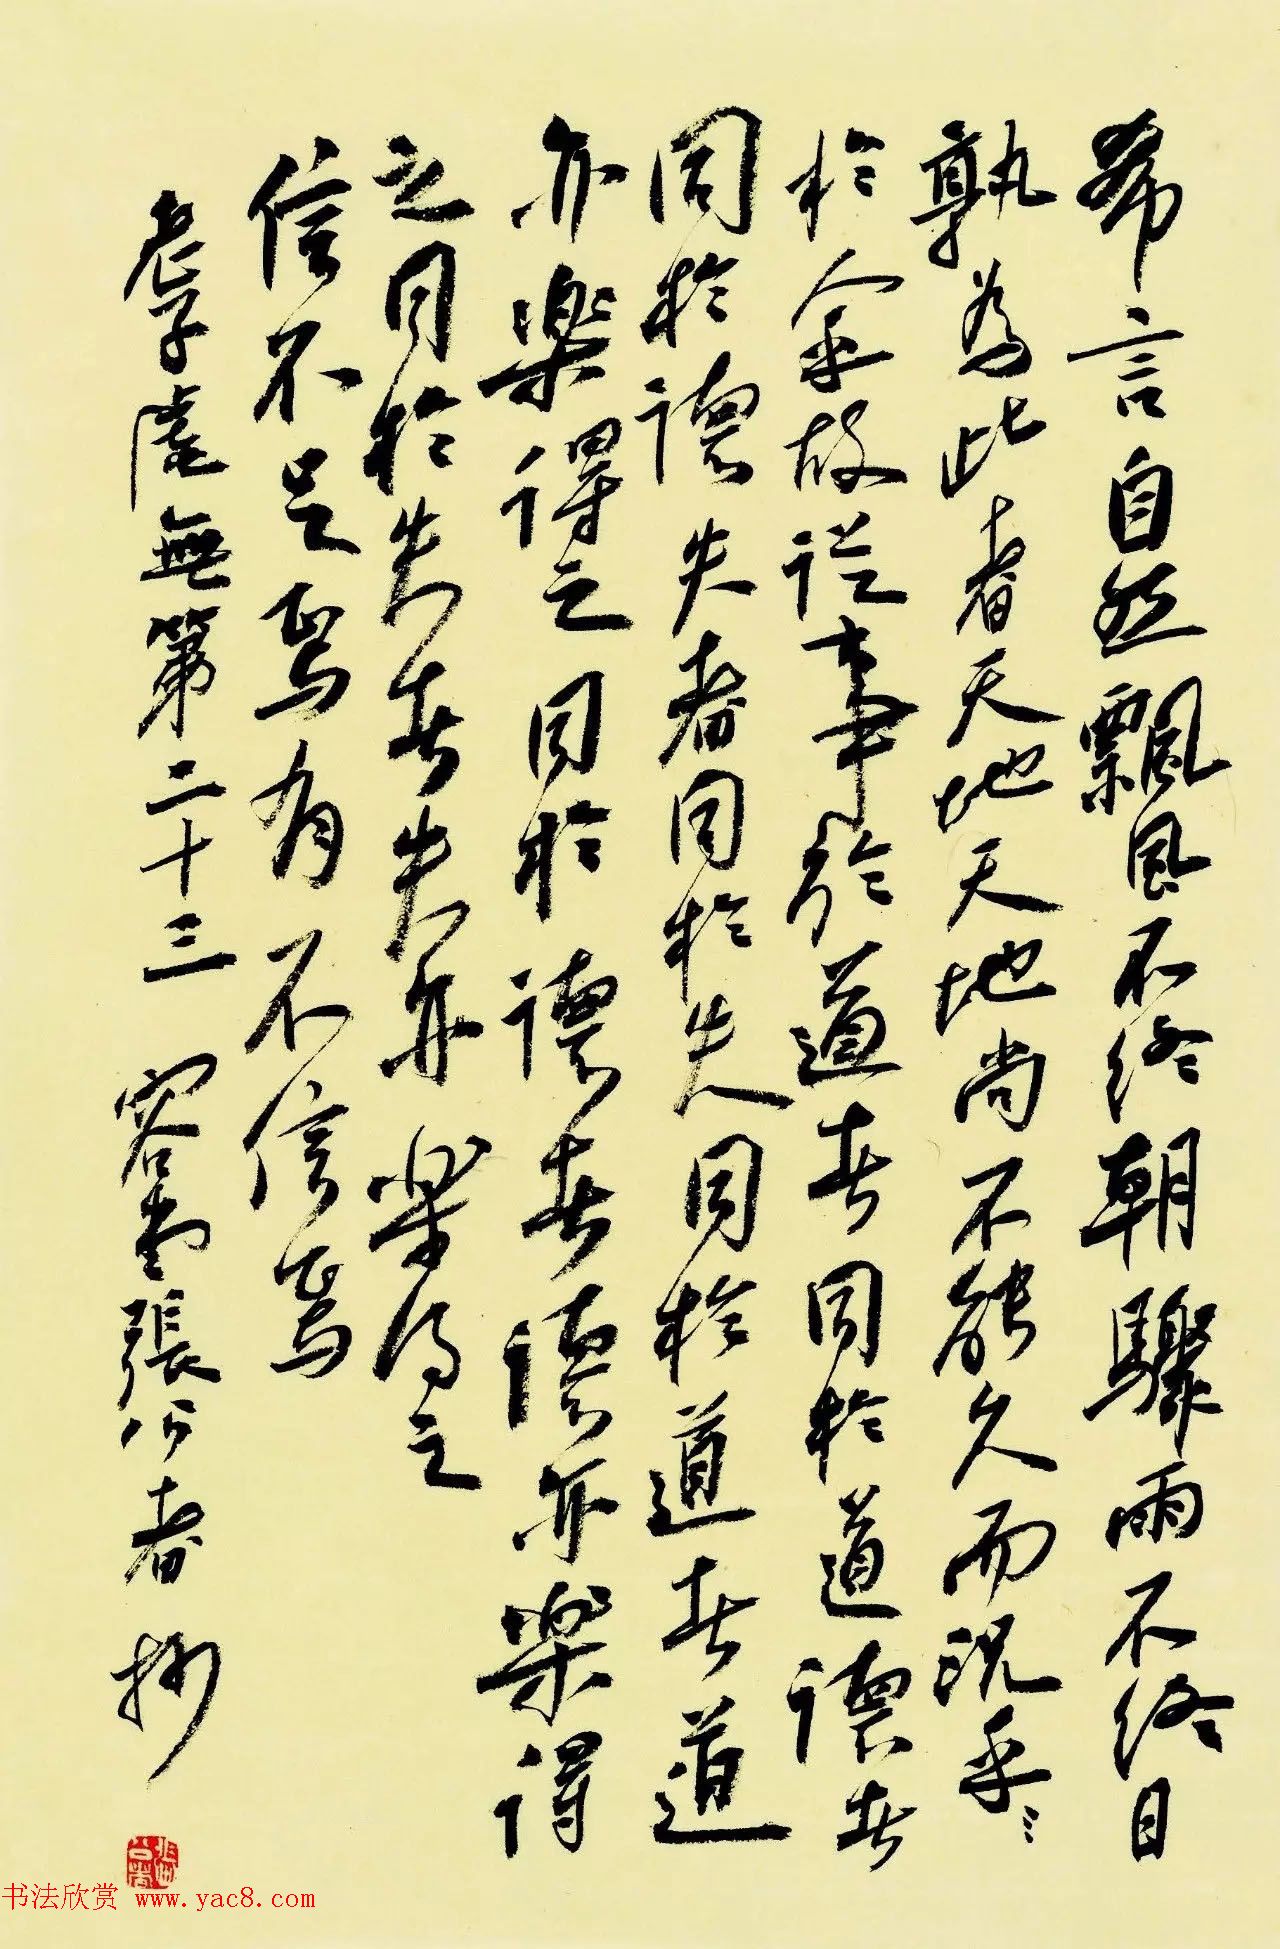 希言自然飄風不終朝驟雨不終日
孰為此者天地天地尚不能久而況乎
於人乎故從事於道者同於道德者
同於德失者同於失同於道者道
亦樂得之同於德者德亦樂得
之同於失者失亦樂得之
信不足焉有不信焉
老子虛無第二十三 容堂張公者抄
书法欣赏 www.yac8.com